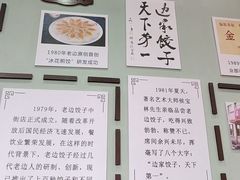 边家饺子
天下第一
金
1980年老边原创首创
“冰花煎饺”研发成功
1979年，老边饺子中
街店正式成立。随着改革开
放后国民经济飞速发展，餐
饮业繁荣发展，在这样的时
代背景下，老边饺子经过几
代老边人的研制，创新，现
1981年夏天，
著名艺术大师侯宝
林先生亲临品尝老
边饺子，吃得兴致
勃勃，称赞不已，
席间余兴未尽，挥
毫写了八个大字：
“边家饺子，天下
第一”。